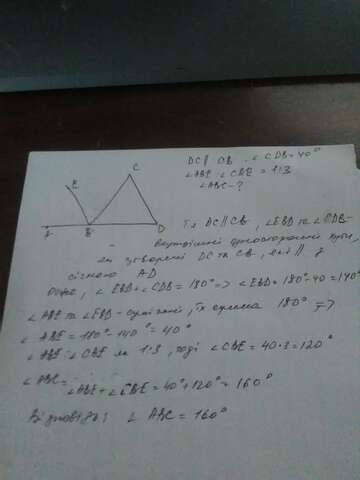 C
E
A B D
DC || CB . ∠CDB = 40°
∠ABE : ∠CBE = 1:3
∠ABC - ?
Т.я DC || CB, ∠EBD та ∠CDB -
внутрішні односторонні кути,
утворені DC та CB,
січною AD
Отже, ∠EBD + ∠CDB = 180° => ∠EBD = 180° - 40 = 140°
∠ABE та ∠EBD - суміжні, їх сума 180° =>
∠ABE = 180° - 140° = 40°
∠ABE : ∠CBE як 1:3, тоді ∠CBE = 40·3 = 120°
∠ABC = ∠ABE + ∠CBE = 40° + 120° = 160°
Відповідь: ∠ABC = 160°